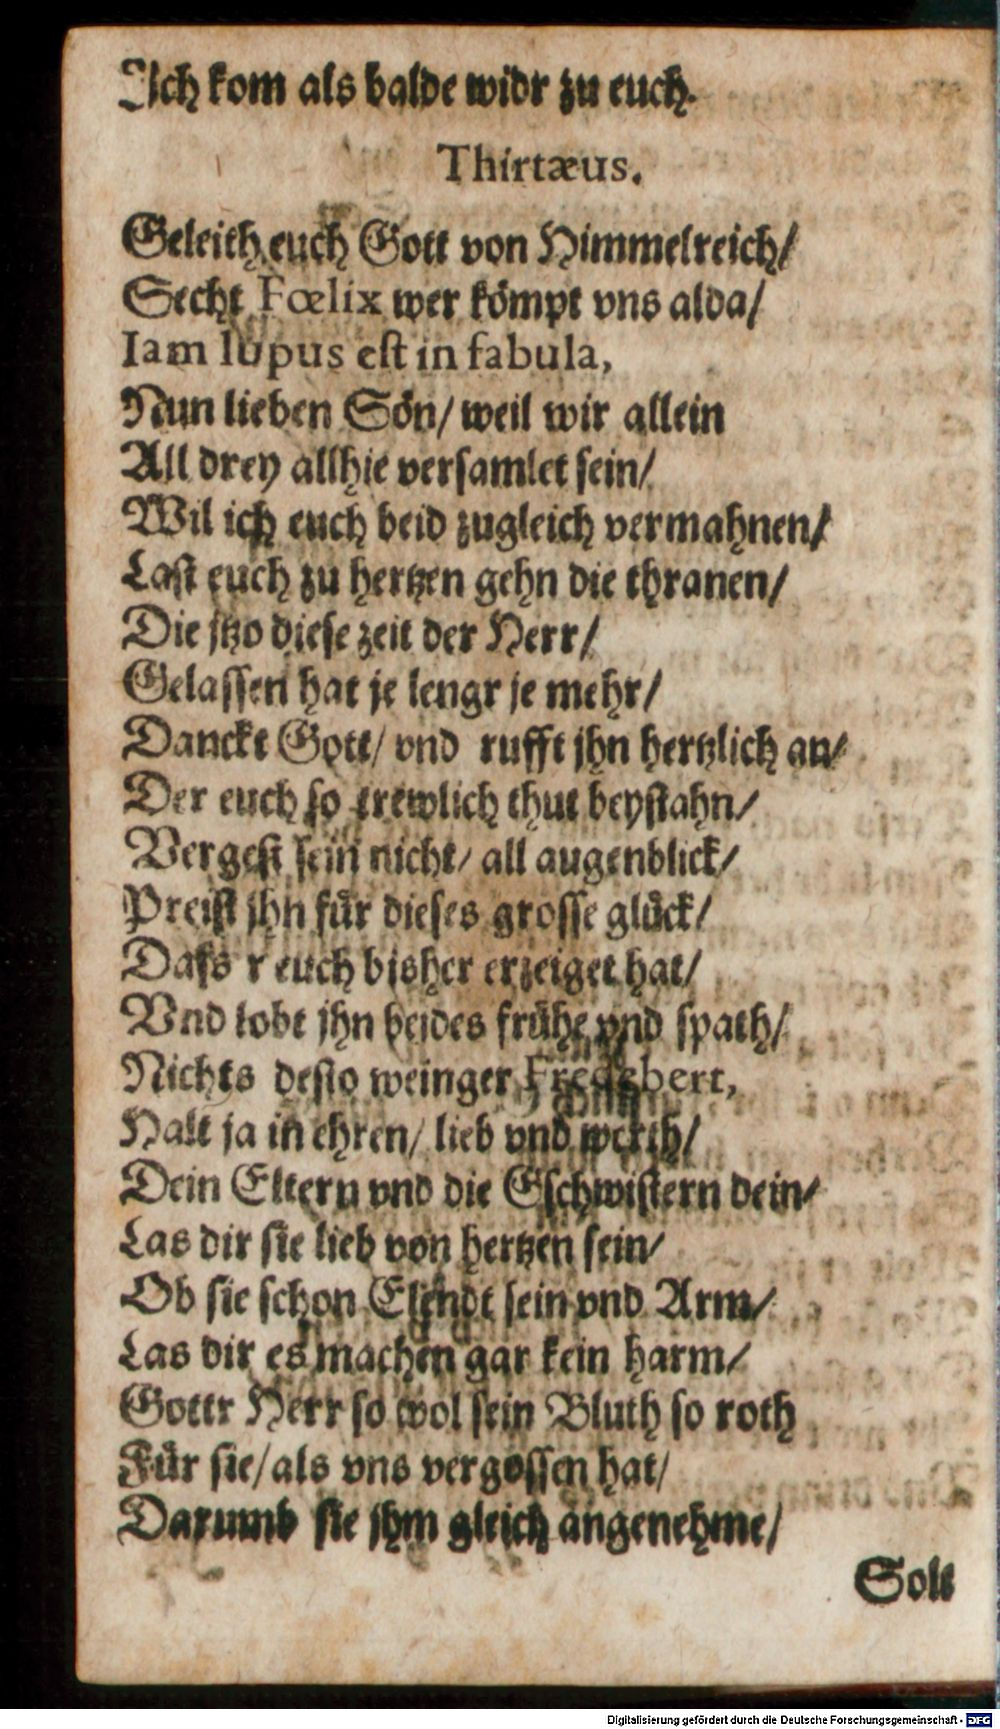 Ich kom als balde widr zu euch.
Thirtæus.
Geleith euch Gott von Himmelreich/
Secht Fœlix wer kömpt vns alda/
Iam lupus eſt in fabula,
Nun lieben Sön/ weil wir allein
All drey allhie verſamlet ſein/
Wil ich euch beid zugleich vermahnen/
Laſt euch zu hertzen gehn die thranen/
Die jtzo dieſe zeit der Herr/
Gelaſſen hat je lengr je mehr/
Danckt Gott/ vnd rufft jhn hertzlich an/
Der euch ſo trewlich thut beyſtahn/
Vergeſt ſein nicht/ all augenblick/
Preiſt jhn für dieſes groſſe glück/
Daſs r euch bisher erzeiget hat/
Vnd lobt jhn beides frühe vnd ſpath/
Nichts deſto weinger Fredebert,
Halt ja in ehren/ lieb vnd werth/
Dein Eltern vnd die Gſchwiſtern dein/
Las dir ſie lieb von hertzen ſein/
Ob ſie ſchon Elendt ſein vnd Arm/
Las dir es machen gar kein harm/
Gottr Herr ſo wol ſein Bluth ſo roth
Für ſie/ als vns vergoſſen hat/
Darumb ſie jhm gleich angenehme/
Solt
Digitalisierung gefördert durch die Deutsche Forschungsgemeinschaft - DFG